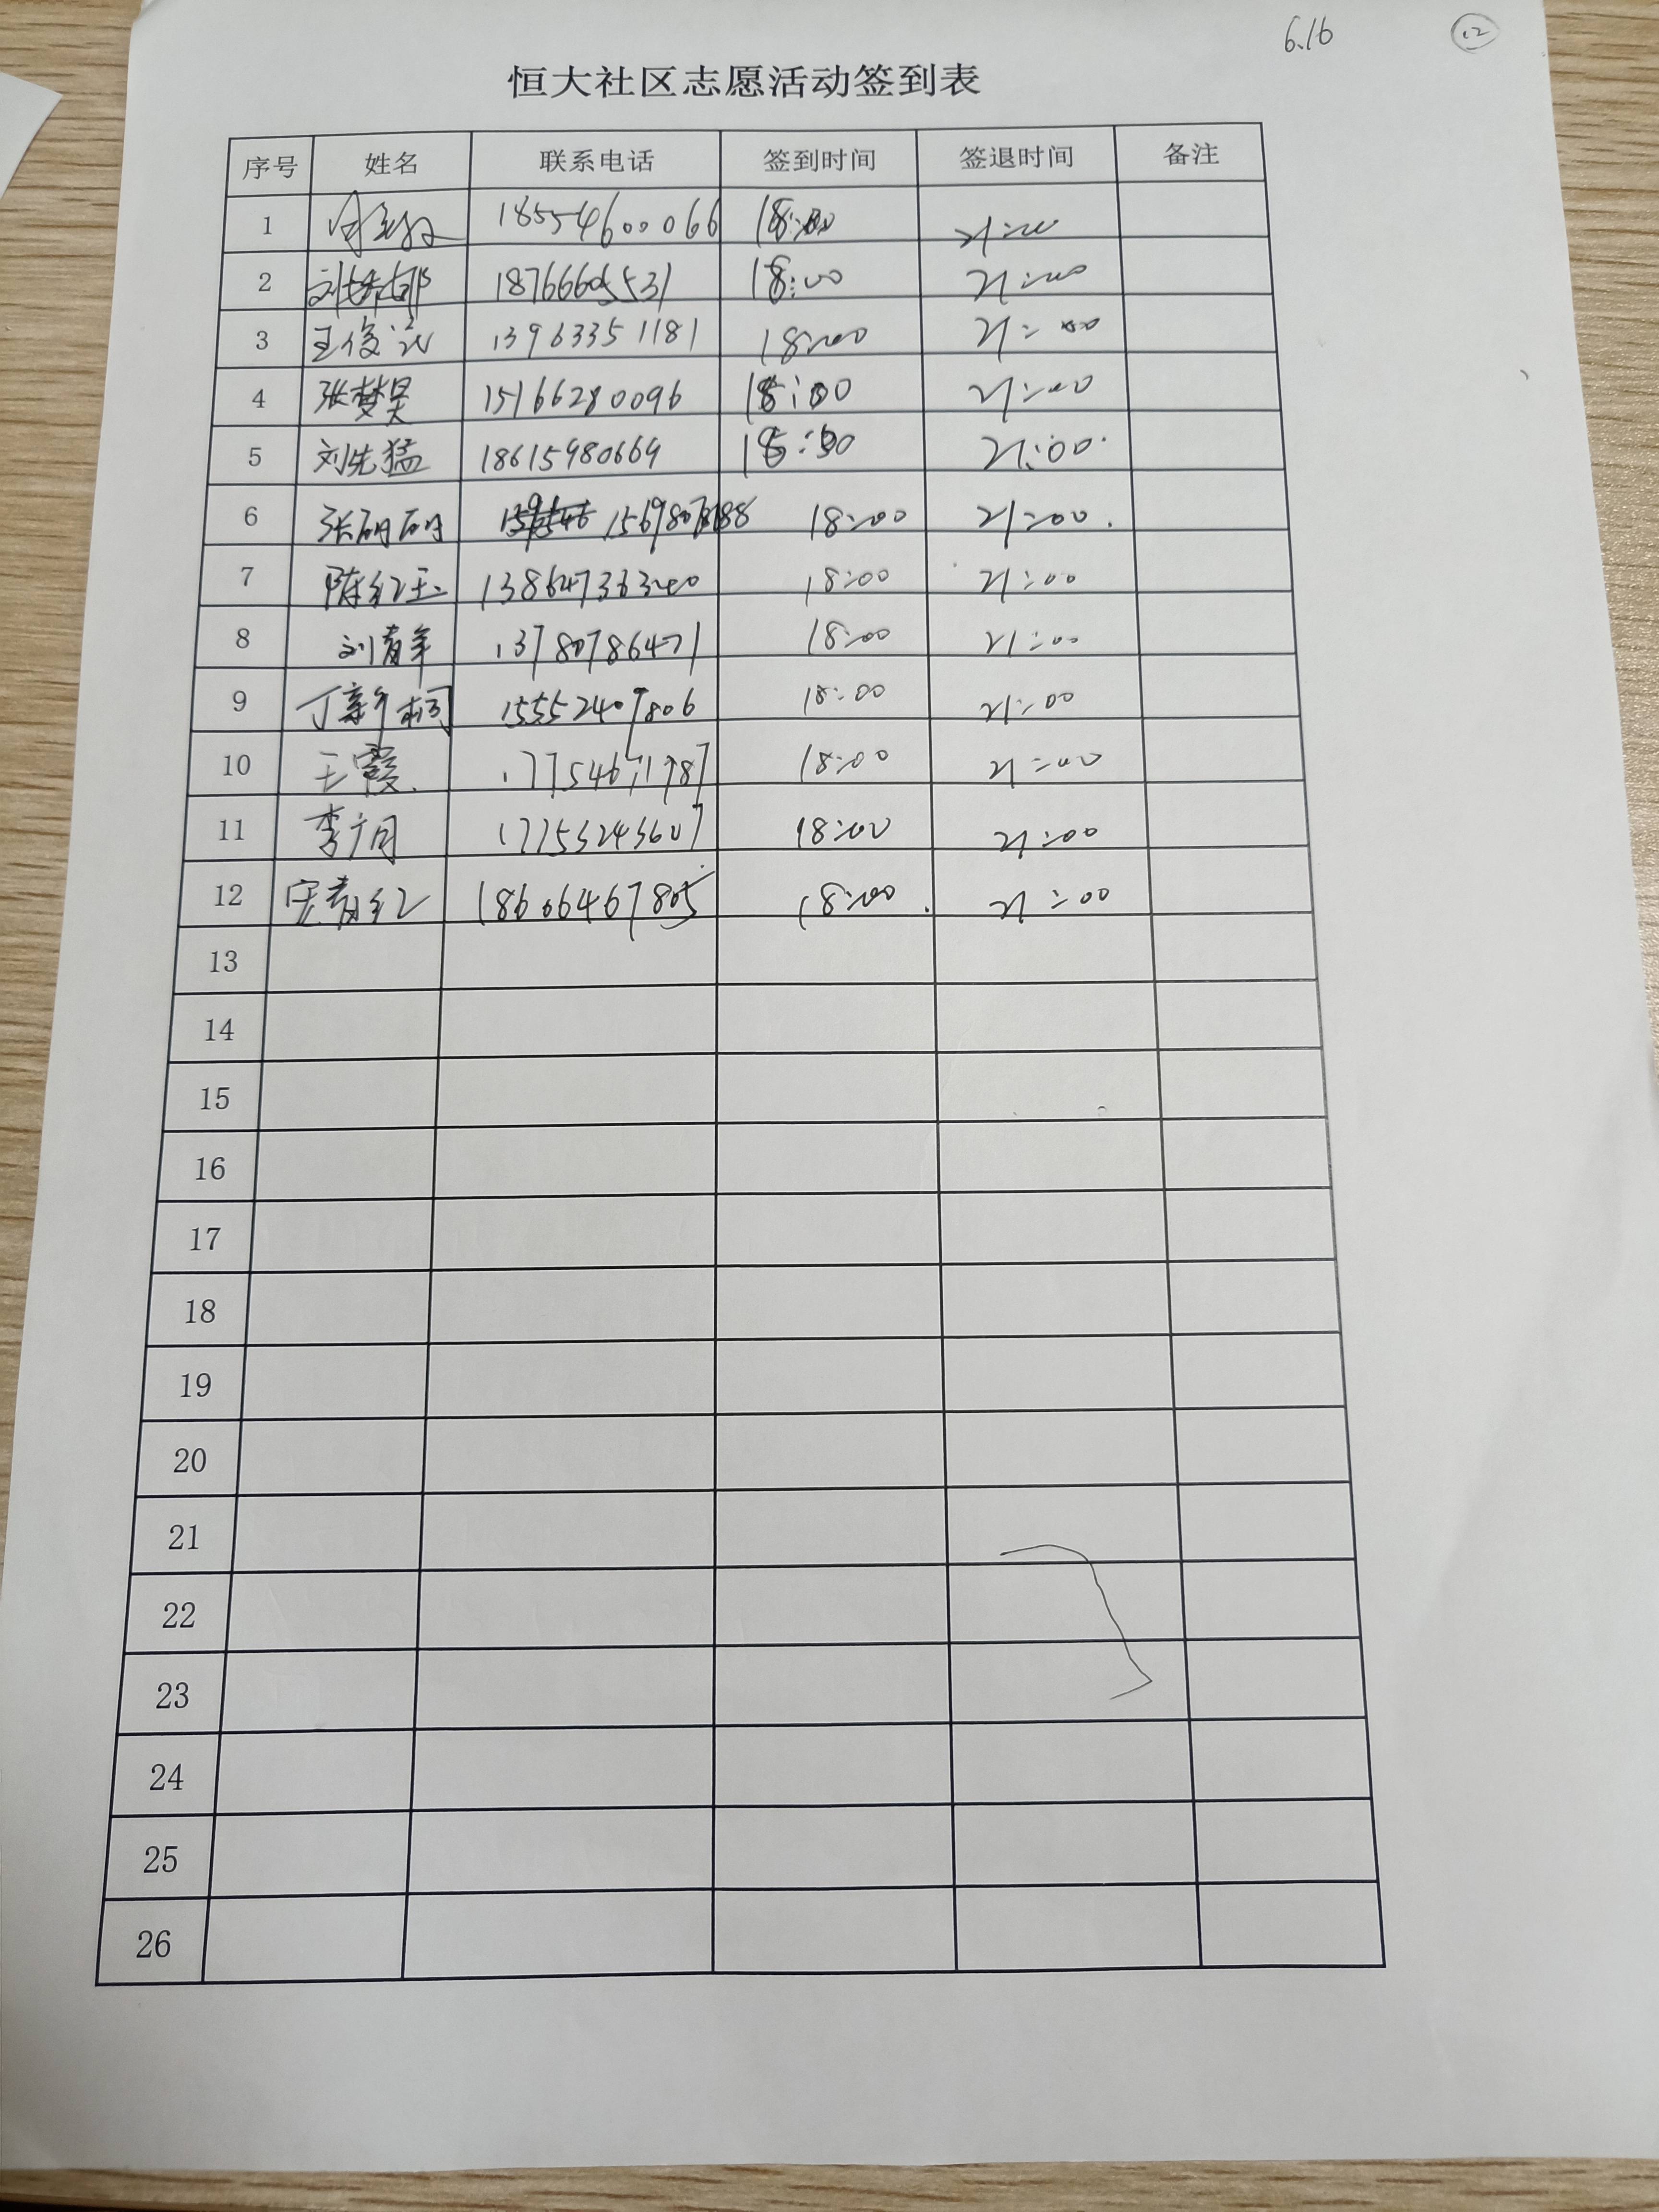 6.16 12
恒大社区志愿活动签到表
序号 姓名 联系电话 签到时间 签退时间 备注
1 18554600066 18:00 21:00
2 刘 18766605531 18:00 21:00
3 王俊 13963351181 18:00 21:00
4 张梦昊 15166280096 18:00 21:00
5 刘先猛 18615980669 18:00 21:00
6 张硕硕 18:00 21:00
7 陈红玉 18:00 21:00
8 刘青年 13780786471 18:00 21:00
9 丁新桐 15552409806 18:00 21:00
10 王霞 17754671787 18:00 21:00
11 李月 17753243607 18:00 21:00
12 18606467805 18:00 21:00
13
14
15
16
17
18
19
20
21
22
23
24
25
26